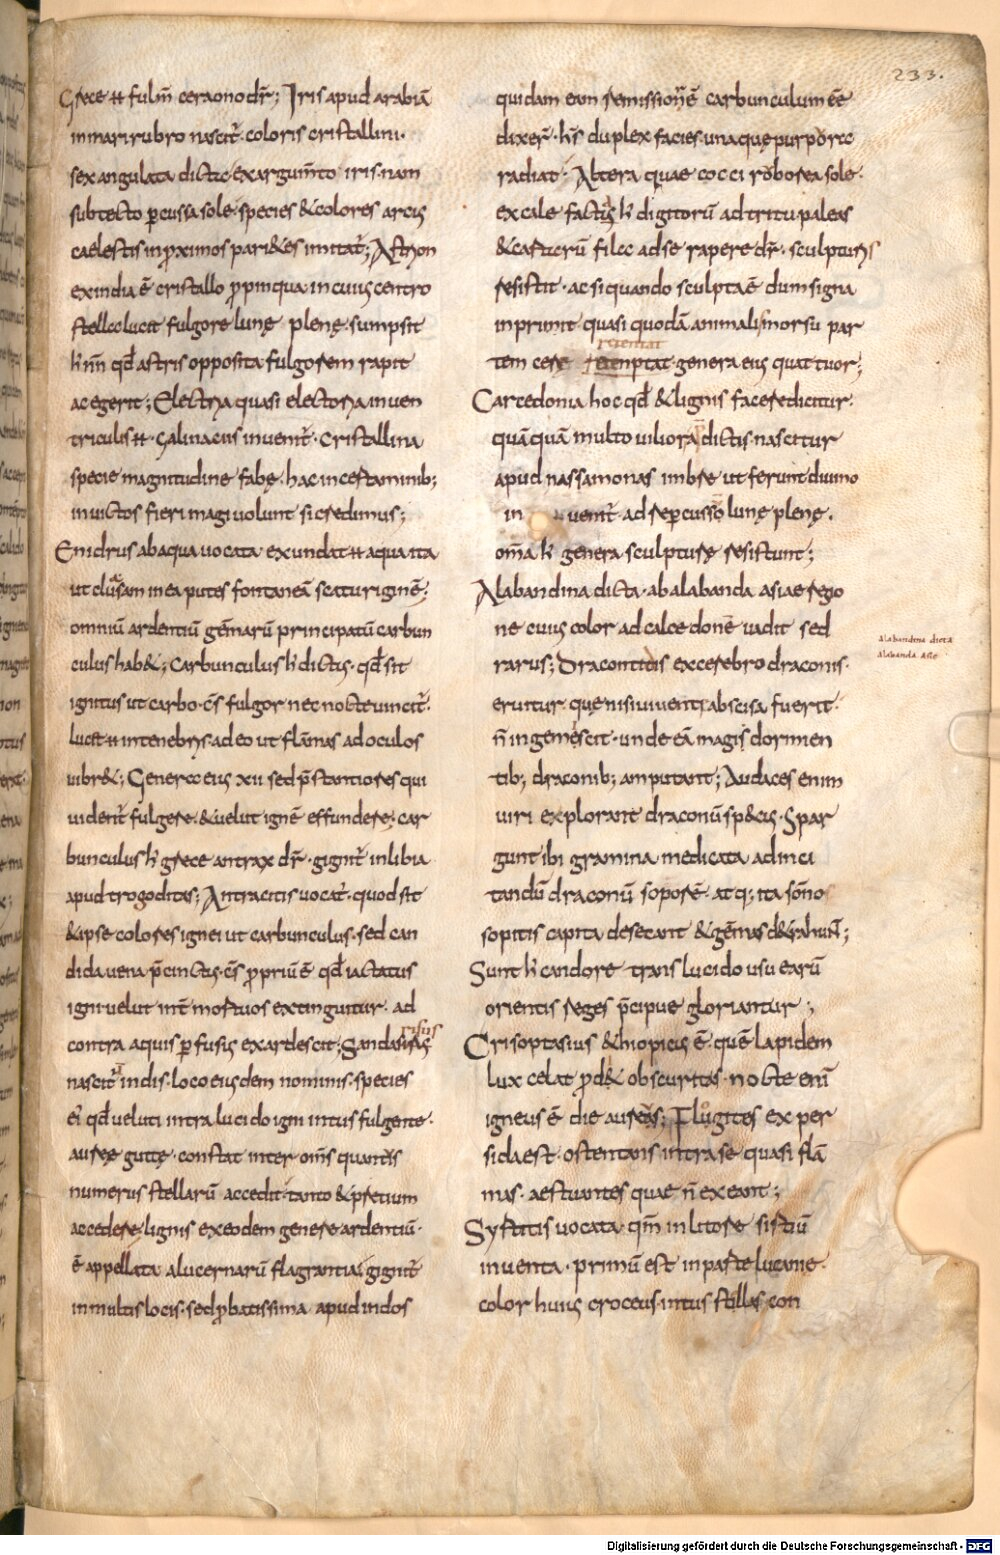 233.
Grece ħ fulm̄ ceraono dr̄; Iris apud arabiā
in mari rubro nascit̄. coloris cristallini.
sex angulata dicta exargum̄to iris. nam
sub tecto ꝑcussa sole. species & colores arcus
caelestis inproximos pari&es imitat̄; Astrion
ex india ē cristallo ꝓpinqua in cuius centro
stella lucet fulgore lunę plenę. sumpsit
h̄ nn̄ qd̄ astris opposita fulgorem rapit
ac egerit; Electria quasi electoria in uen
triculis ħ. galinaciis inuenit̄. Cristallina
specie magnitudine fabę. hac in certaminib;
inuictos fieri magi uolunt si credimus;
Enidrus ab aqua uocata exundat ħ aqua ita
ut clusam in ea putes fontaneā scaturiginē;
omniū ardentiū gēmarū principatū carbun
culus hab&; Carbunculus h̄ dictus. qd̄ sit
ignitus ut carbo. cs̄ fulgor nec nocte uincit̄.
lucet ħ in tenebris. ad eo ut flāmas ad oculos
uibr&; Genera eius XII sed p̄stantiores qui
uident̄ fulgere. & uelut ignē effundere. car
bunculus h̄ grece antrax dr̄. gignit̄ in libia
apud trogoditas; Antracitis uocat̄. quod sit
& ipse colores ignei ut carbunculus. sed can
dida uena p̄cinctus. cs̄ ꝓpriū ē qd̄ iactatus
igni uelut int̄ mortuos extinguitur. ad
contra aquis ꝑfusus exardescit; Sandasirus
risus
nascit̄ indis. loco eiusdem nominis. species
ei qd̄ ueluti intra lucido igni intus fulgente.
aureę guttę. constat inter oms̄ quantis
numerus stellarū accedit. tanto & pretium
accedere. lignis ex eodem genere ardentiū.
ē appellata a lucernarū flagrantia. gignit̄
in multis locis. sed ꝓbatissima apud indos
quidam eam remissionē carbunculum ēē
dixer̄. hs̄ duplex facies. una que purpora
radiat. Altera quae cocci robore a sole.
excale factus h̄ digitorū ad tritu paleas
& cartarū fila ad se rapere dr̄. sculpturis
resistit. ac si quando sculpta ē dum signa
inprimit quasi quodā animali morsu par
retentat
tem cere retemptat. genera eius quattuor;
Carcedonia hoc qd̄ & lignis facere dicitur.
quāquā multo uiliora dictis. nascitur
apud nassamonas imbre ut ferunt diuino
in uenit̄. ad reꝑcusso lunę plenę.
om̄a h̄ genera sculpturę resistunt;
Alabandina dicta. ab alabanda asiae regio
ne cuius color ad calcedonē uadit sed
rarus; Dracontidis ex cerebro draconis.
eruitur. quę nisi uiuenti abscisa fuerit.
n̄ ingemescit. unde eā magis dormien
tib; draconib; amputant; Audaces enim
uiri explorant draconū sp&cus. Spar
gunt ibi gramina medicata ad inci
tandū draconū soporē. atq; ita sōno
sopitis capita desecant & gēmas
Sunt h̄ candore trans lucido usu earū
orientis reges p̄cipue gloriantur;
Crisoptasius &hiopicus ē. quē lapidem
lux celat ꝓd& obscuritas. nocte enī
igneus ē die aureus; Flugites ex per
sida est. ostentans intra se quasi flā
mas. aestuantes quae n̄ exeant;
Syrtitis uocata. qm̄ in litore sirtiū
inuenta. primū est in parte lucanie.
color huius croceus. intus stellas con
Alabandina dicta
Alabanda Asie
Digitalisierung gefördert durch die Deutsche Forschungsgemeinschaft - DFG